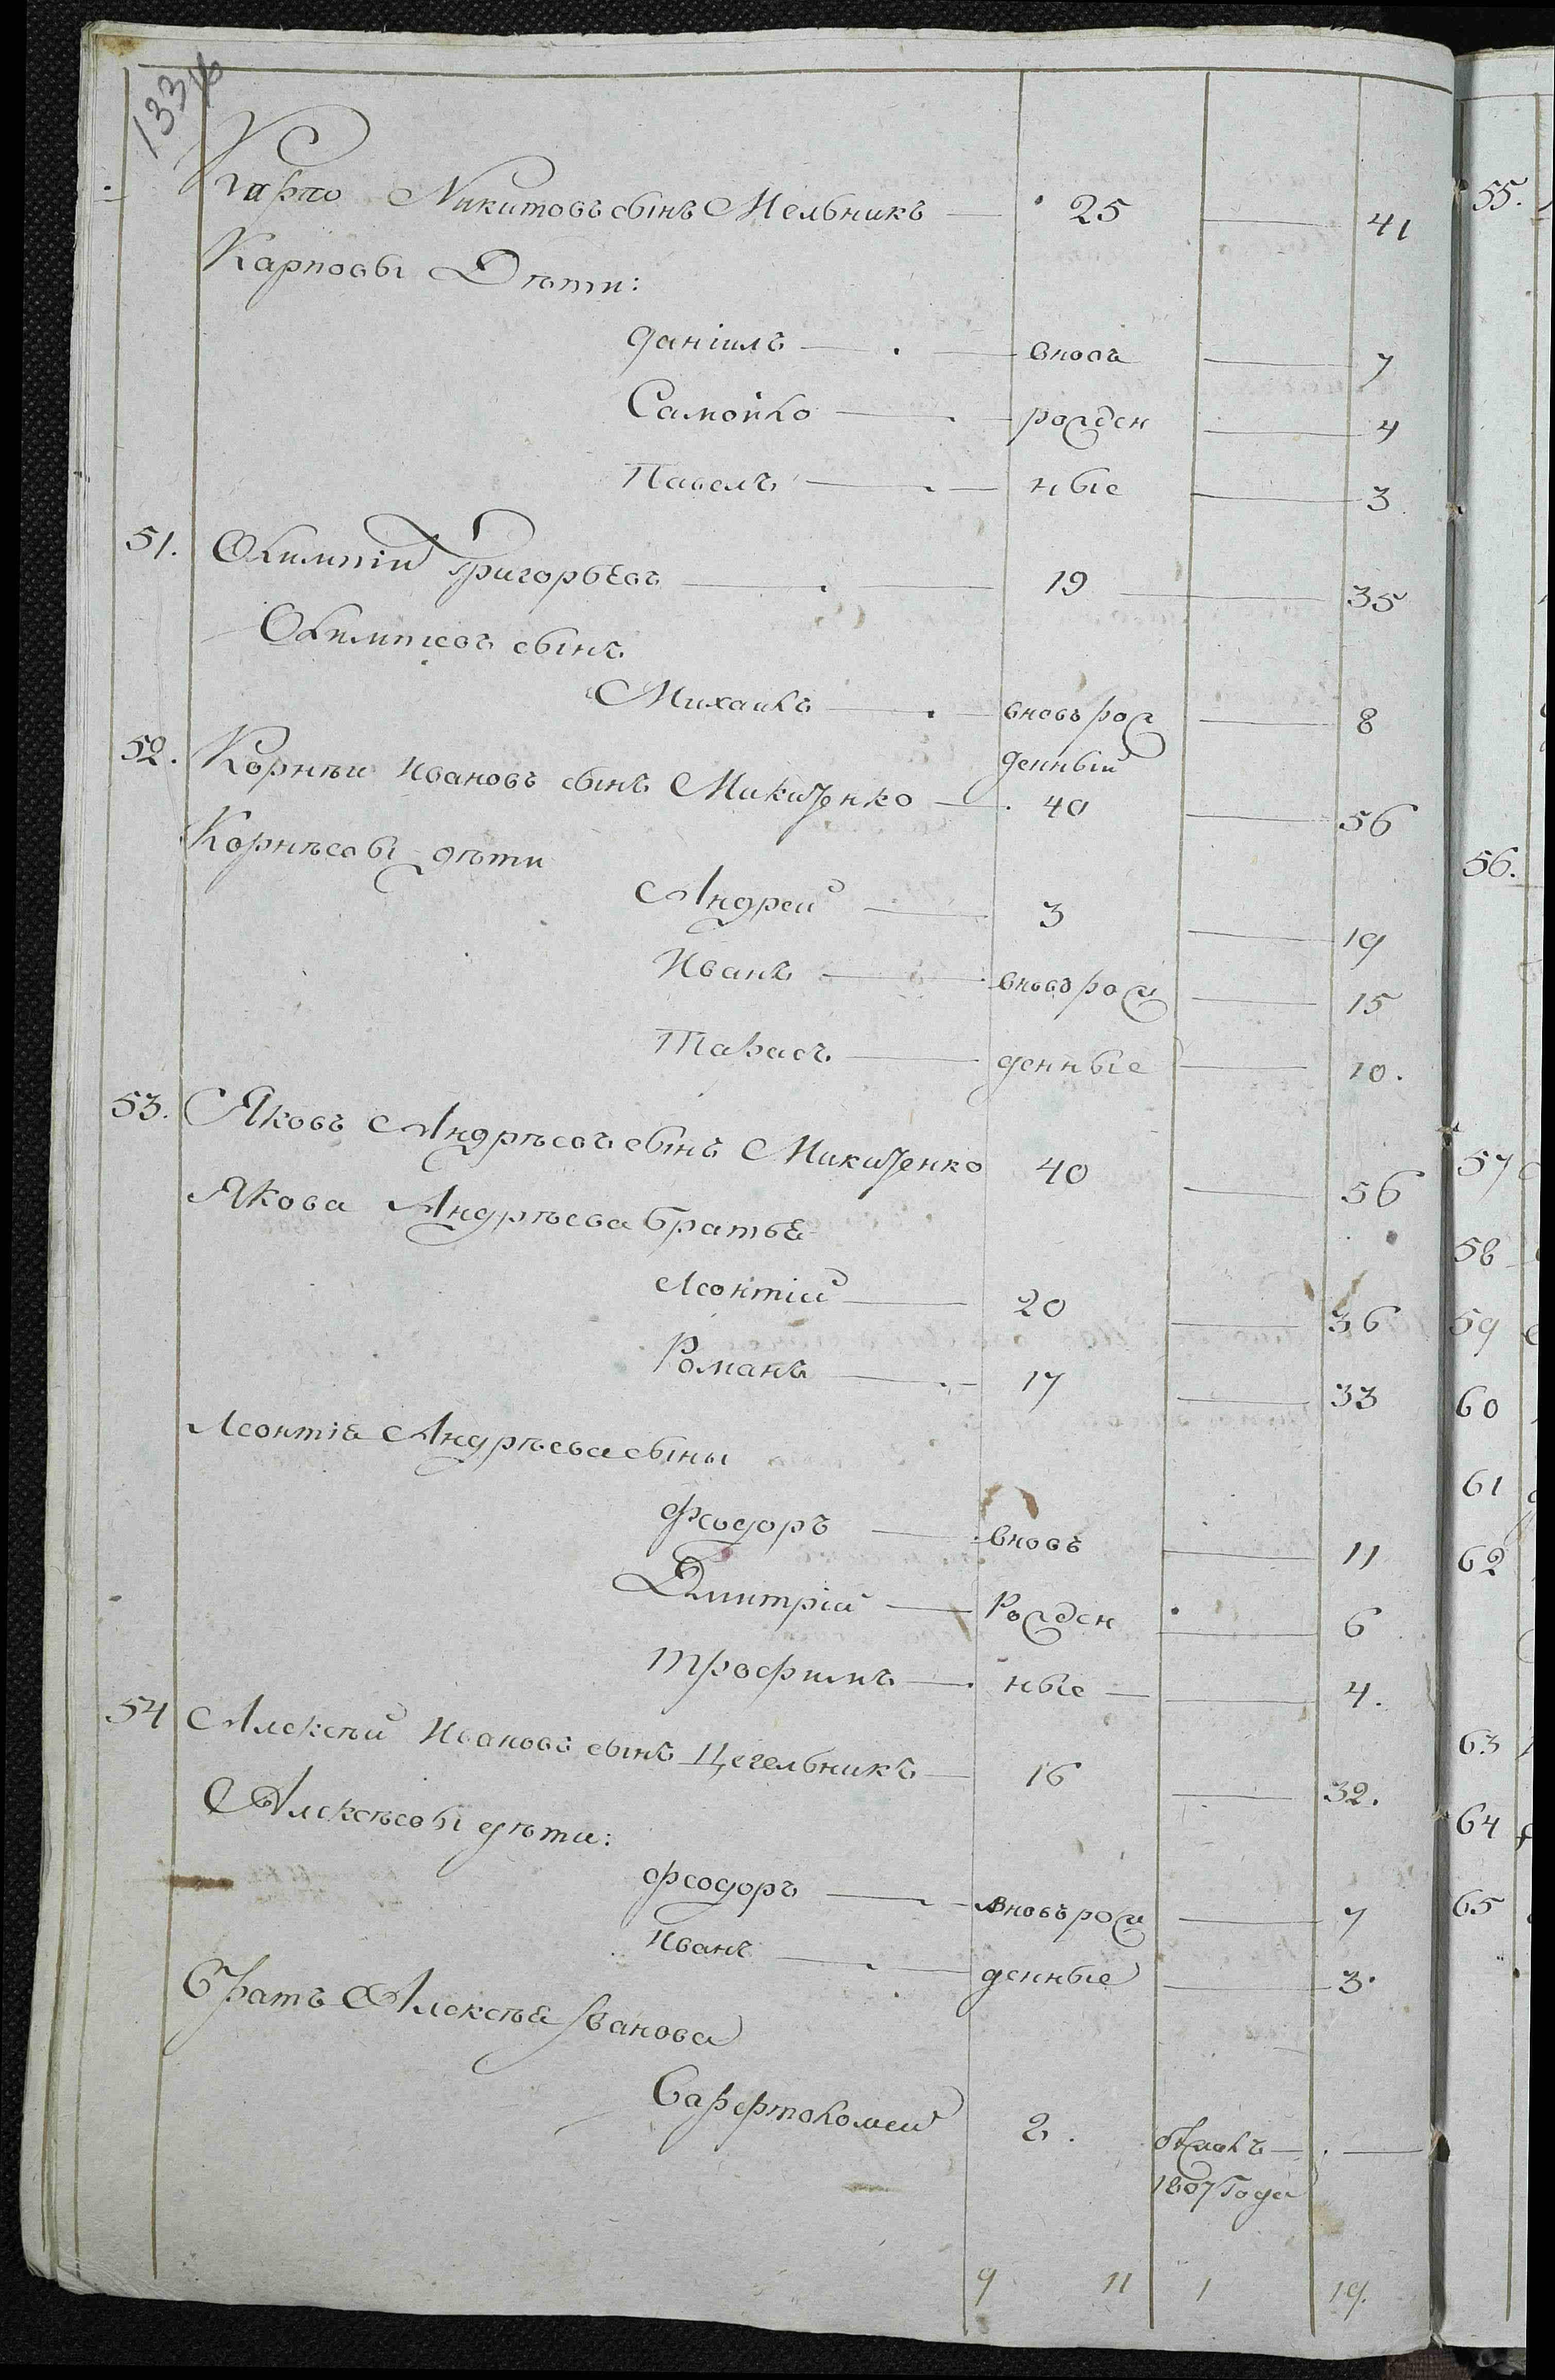 Карпо Никитовъ сынъ Мельникъ — 25 — 41
Карповы Дѣти:
Данiилъ — вновь — 7
Самойло — рожден — 4
Павелъ — ные — 3
51. Олимпiй Григорьевъ — 19 — 35
Олимпiевъ сынъ
Михаилъ — вновь рож — 8
денный
52. Корнѣй Ивановъ сынъ Микитенко — 40 — 56
Корнѣевы дѣти
Андрей — 3 — 19
Иванъ — вновь рож — 15
Тарасъ — денные — 10.
53. Яковъ Андрѣевъ сынъ Микитенко 40 — 56
Якова Андрѣева братья
Леонтiй — 20 — 36
Романъ — 17 — 33
Леонтiя Андрѣева сыны
Феодоръ — вновь — 11
Дмитрiй — Рожден — 6
Трофимъ — ные — 4.
54 Алексѣй Ивановъ сынъ Цегельникъ — 16 — 32.
Алексѣевы дѣти:
Феодоръ — вновь рож — 7
Иванъ — денные — 3.
Братъ Алексѣя Иванова
Варфоломей 2. —
1807 Года
9 11 1 19.
55.
56.
57
58
59
60
61
62
63
64
65